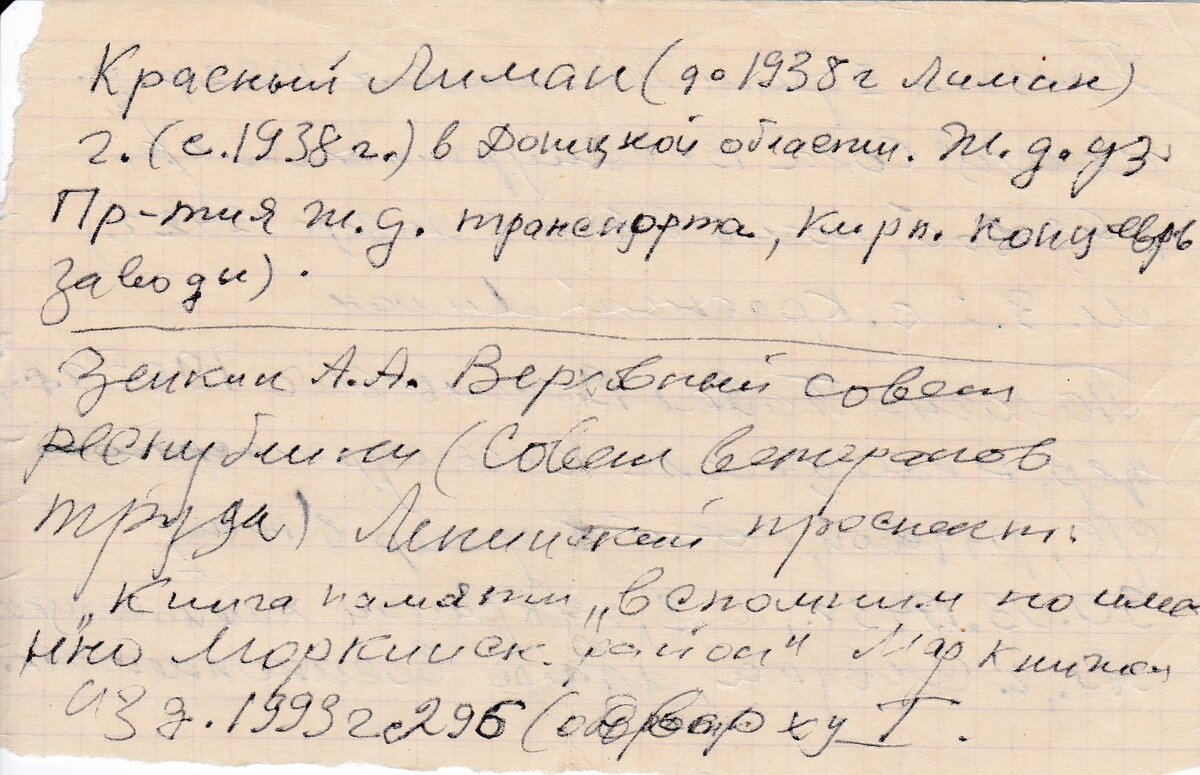 Красный Лиман (до 1938 г Лиман)
г. (с. 1938 г.) в Донецкой области. Ж. д. уз.
Пр-тия ж. д. транспорта, кирп.
заводы).
Зенкин А.А. Верховный совет
республики (Совет ветеранов
труда) Ленинский проспект.
"Книга памяти „вспомним по име
нно Моркинск. район" Мар книжн
изд. 1993 г с 296 ( I.